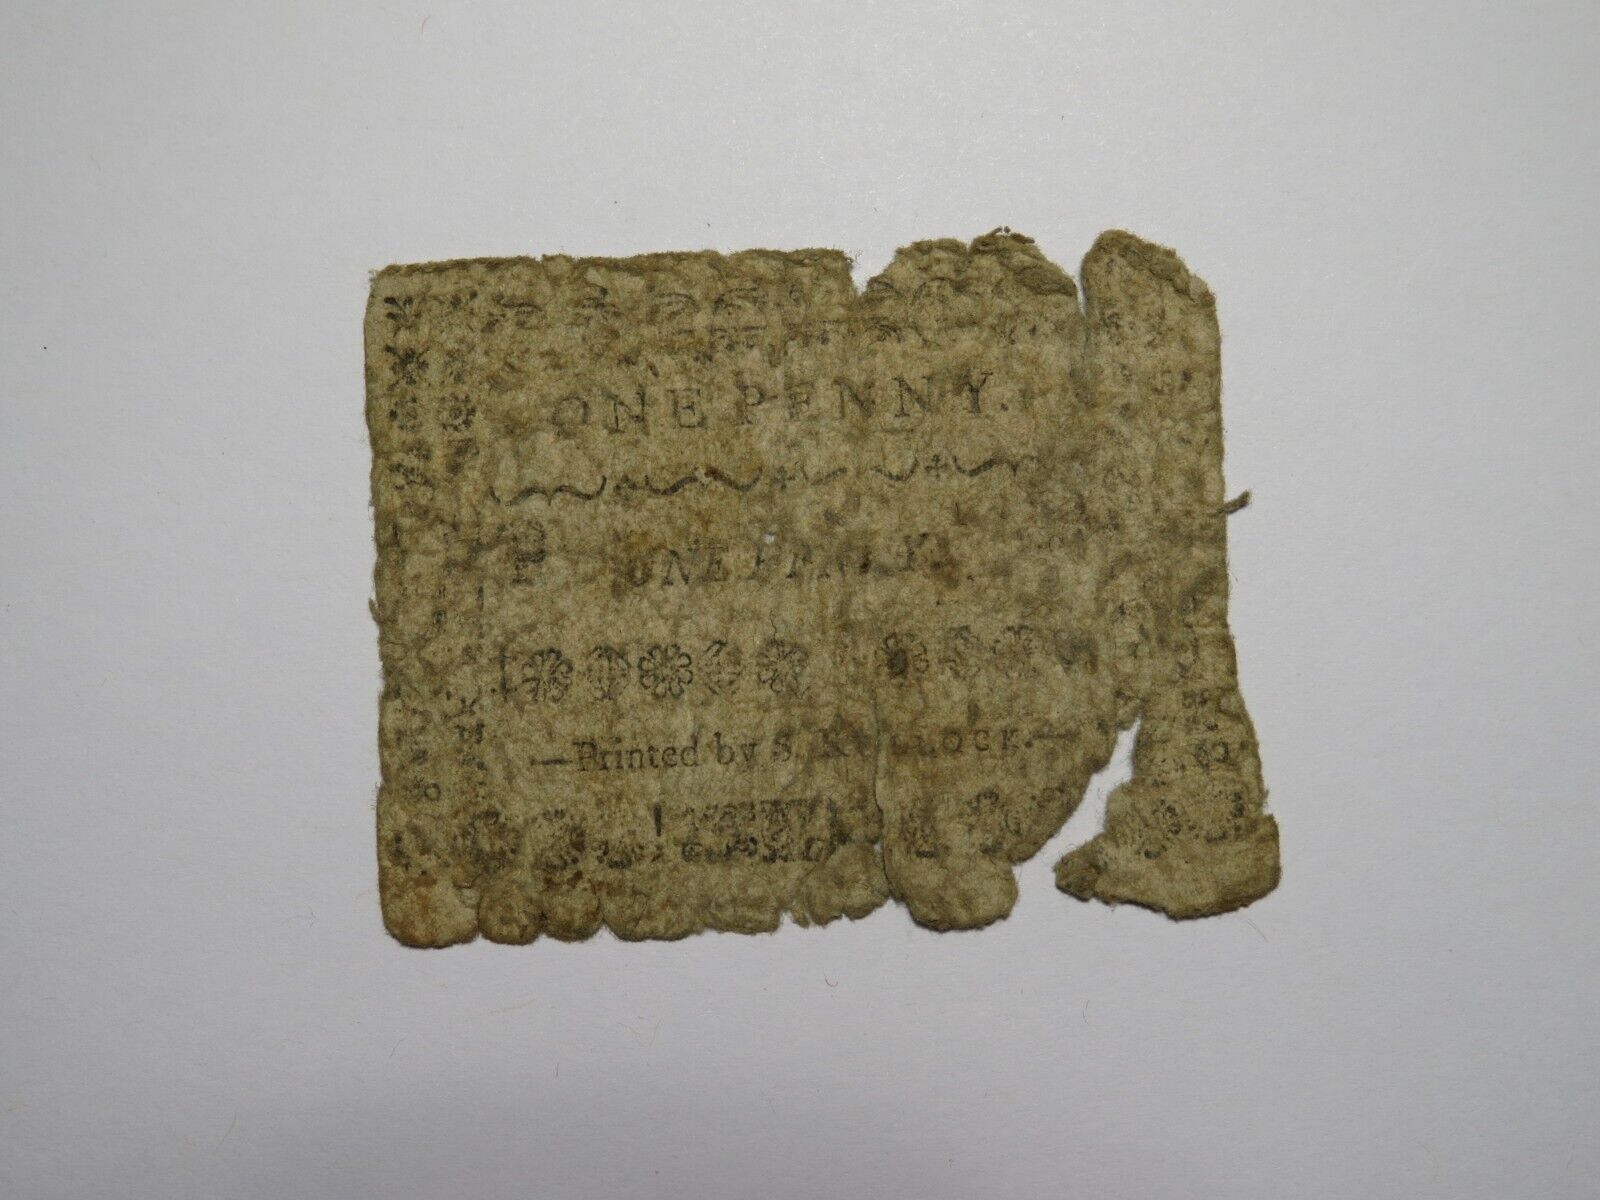 ONE PENNY.
P ONE PENNY.
—Printed by S. KOLLOCK.—